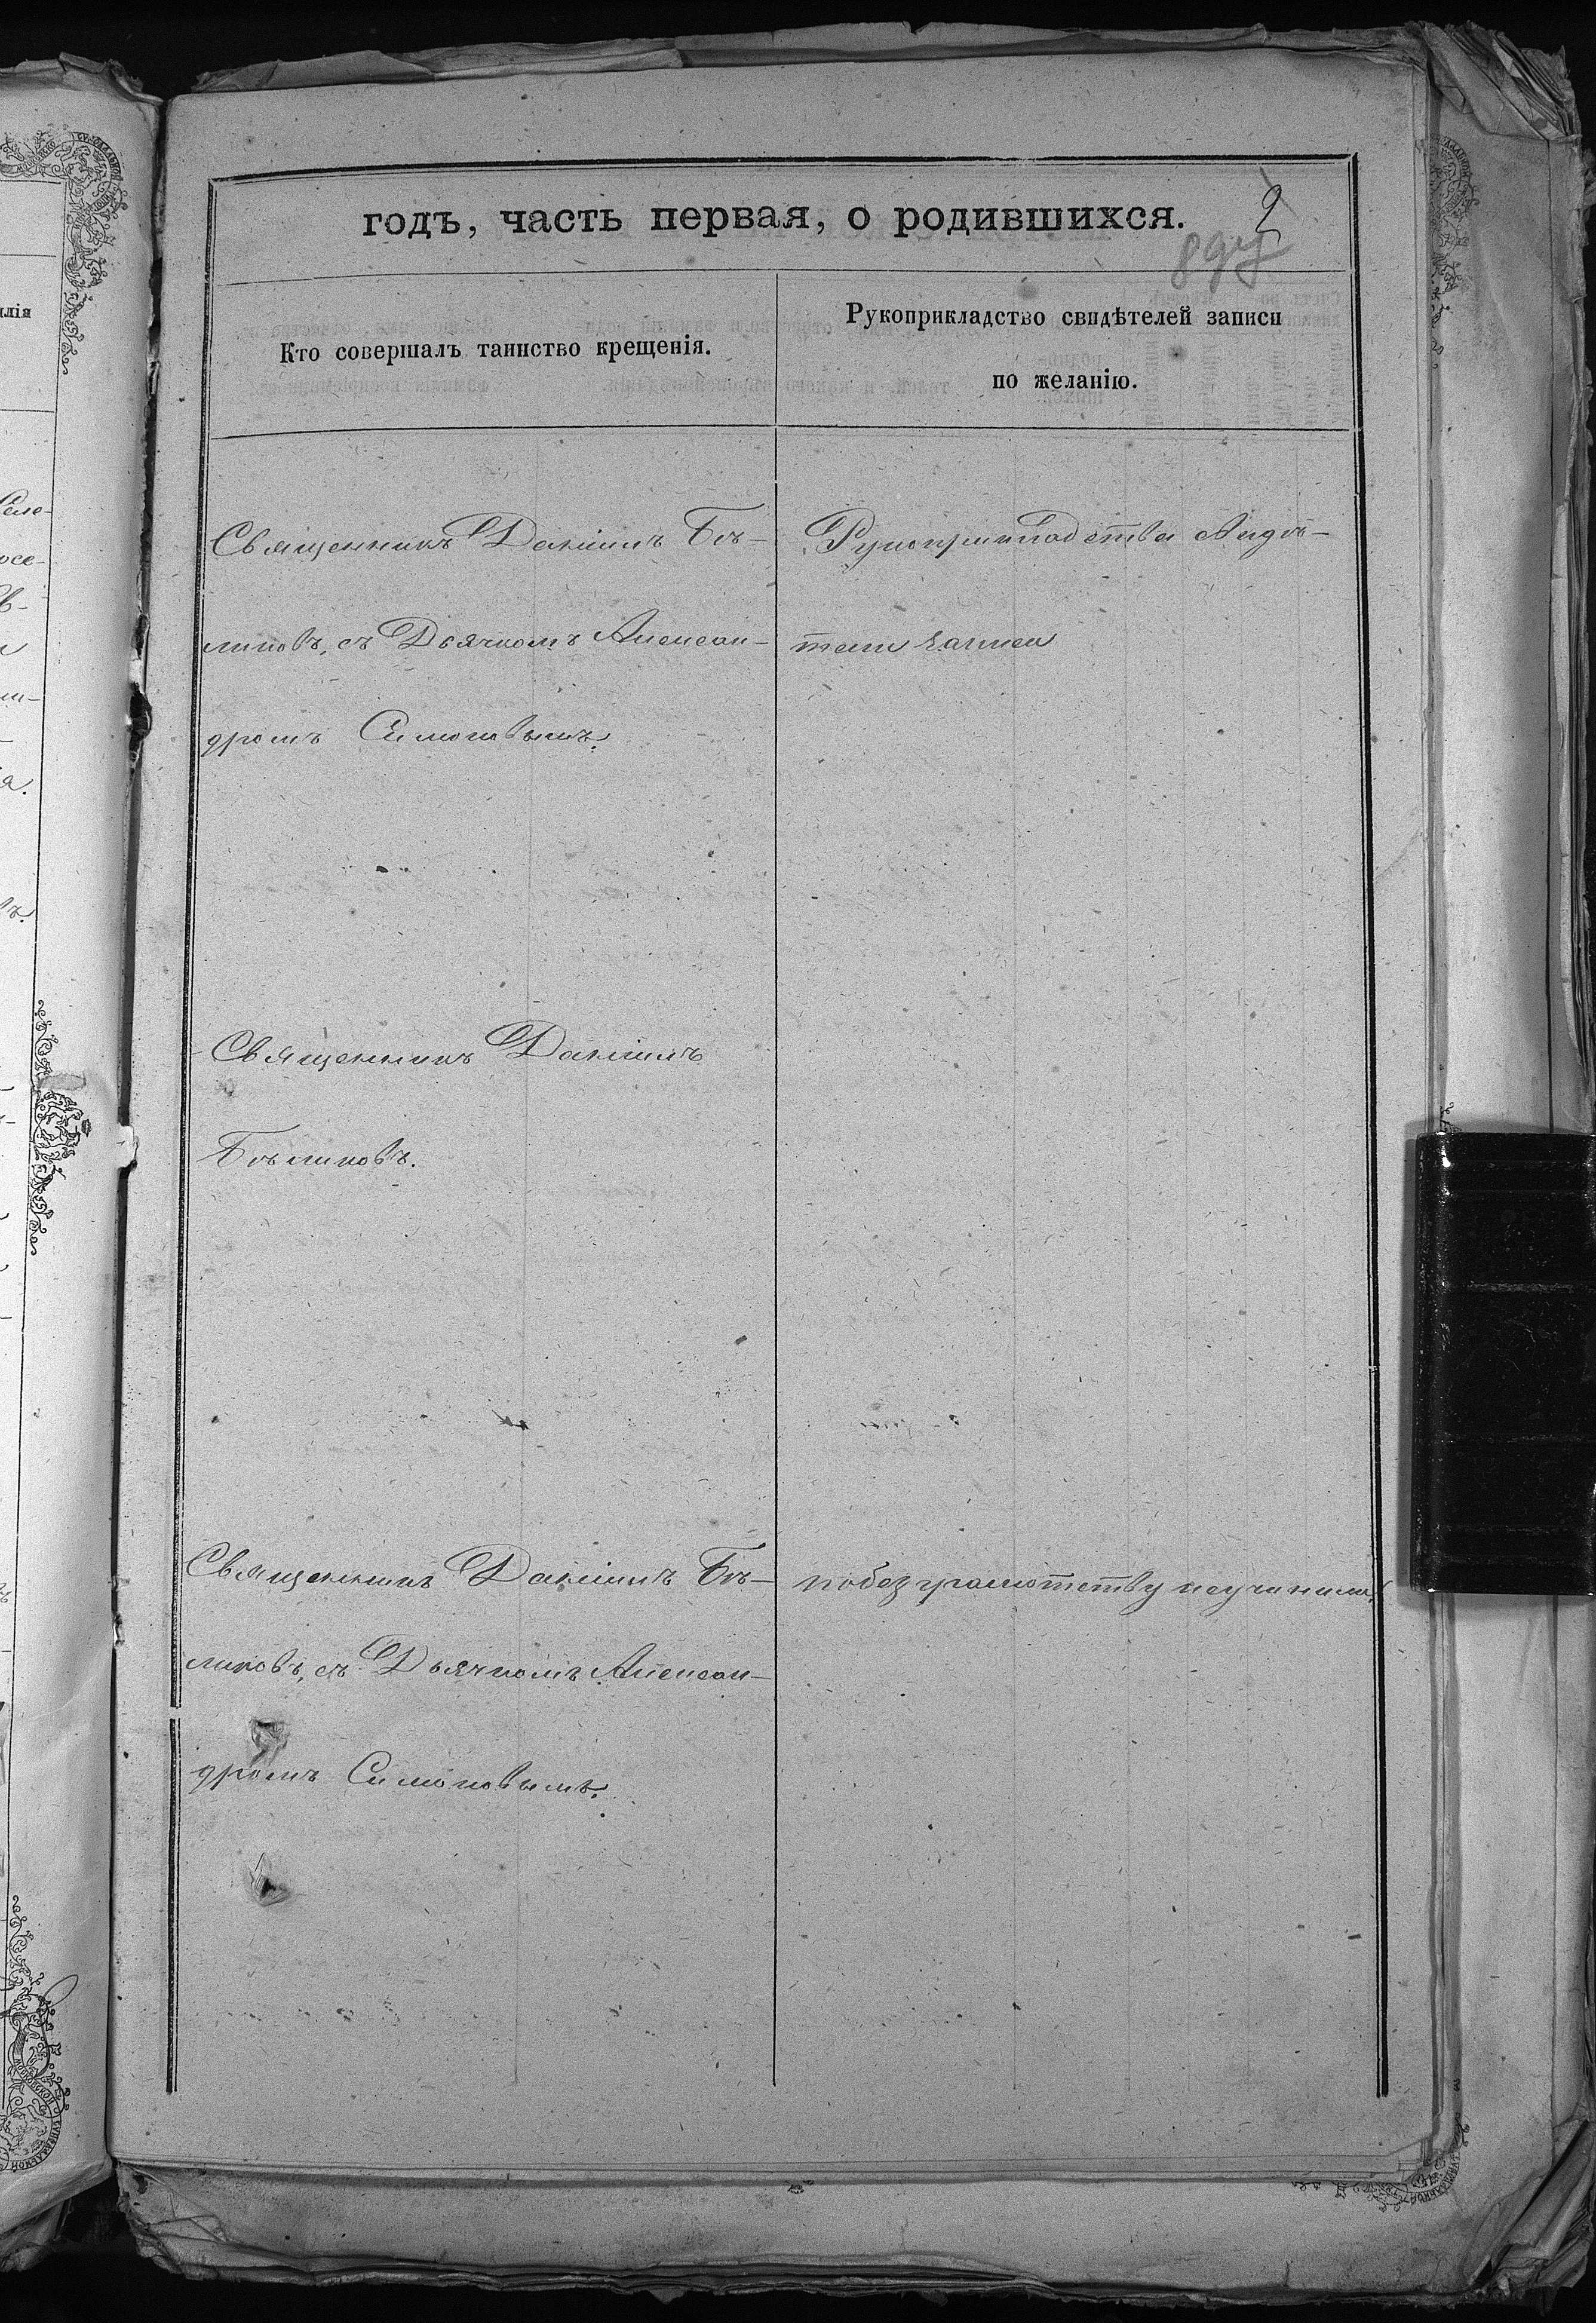 годъ, часть первая, о родившихся.
2
Кто совершалъ таинство крещенія.
Рукоприкладство свидѣтелей записи
по желанію.
Священникъ Даніилъ Бѣ-
ликовъ, съ Дьячкомъ Алексан-
дромъ Симоновымъ.
Рукоприкладства свидѣ-
тели
Священникъ Даніилъ
Бѣликовъ.
Священникъ Даніилъ Бѣ-
ликовъ, съ Дьячкомъ Алексан-
дромъ Симоновымъ.
побезграмотству неучинили